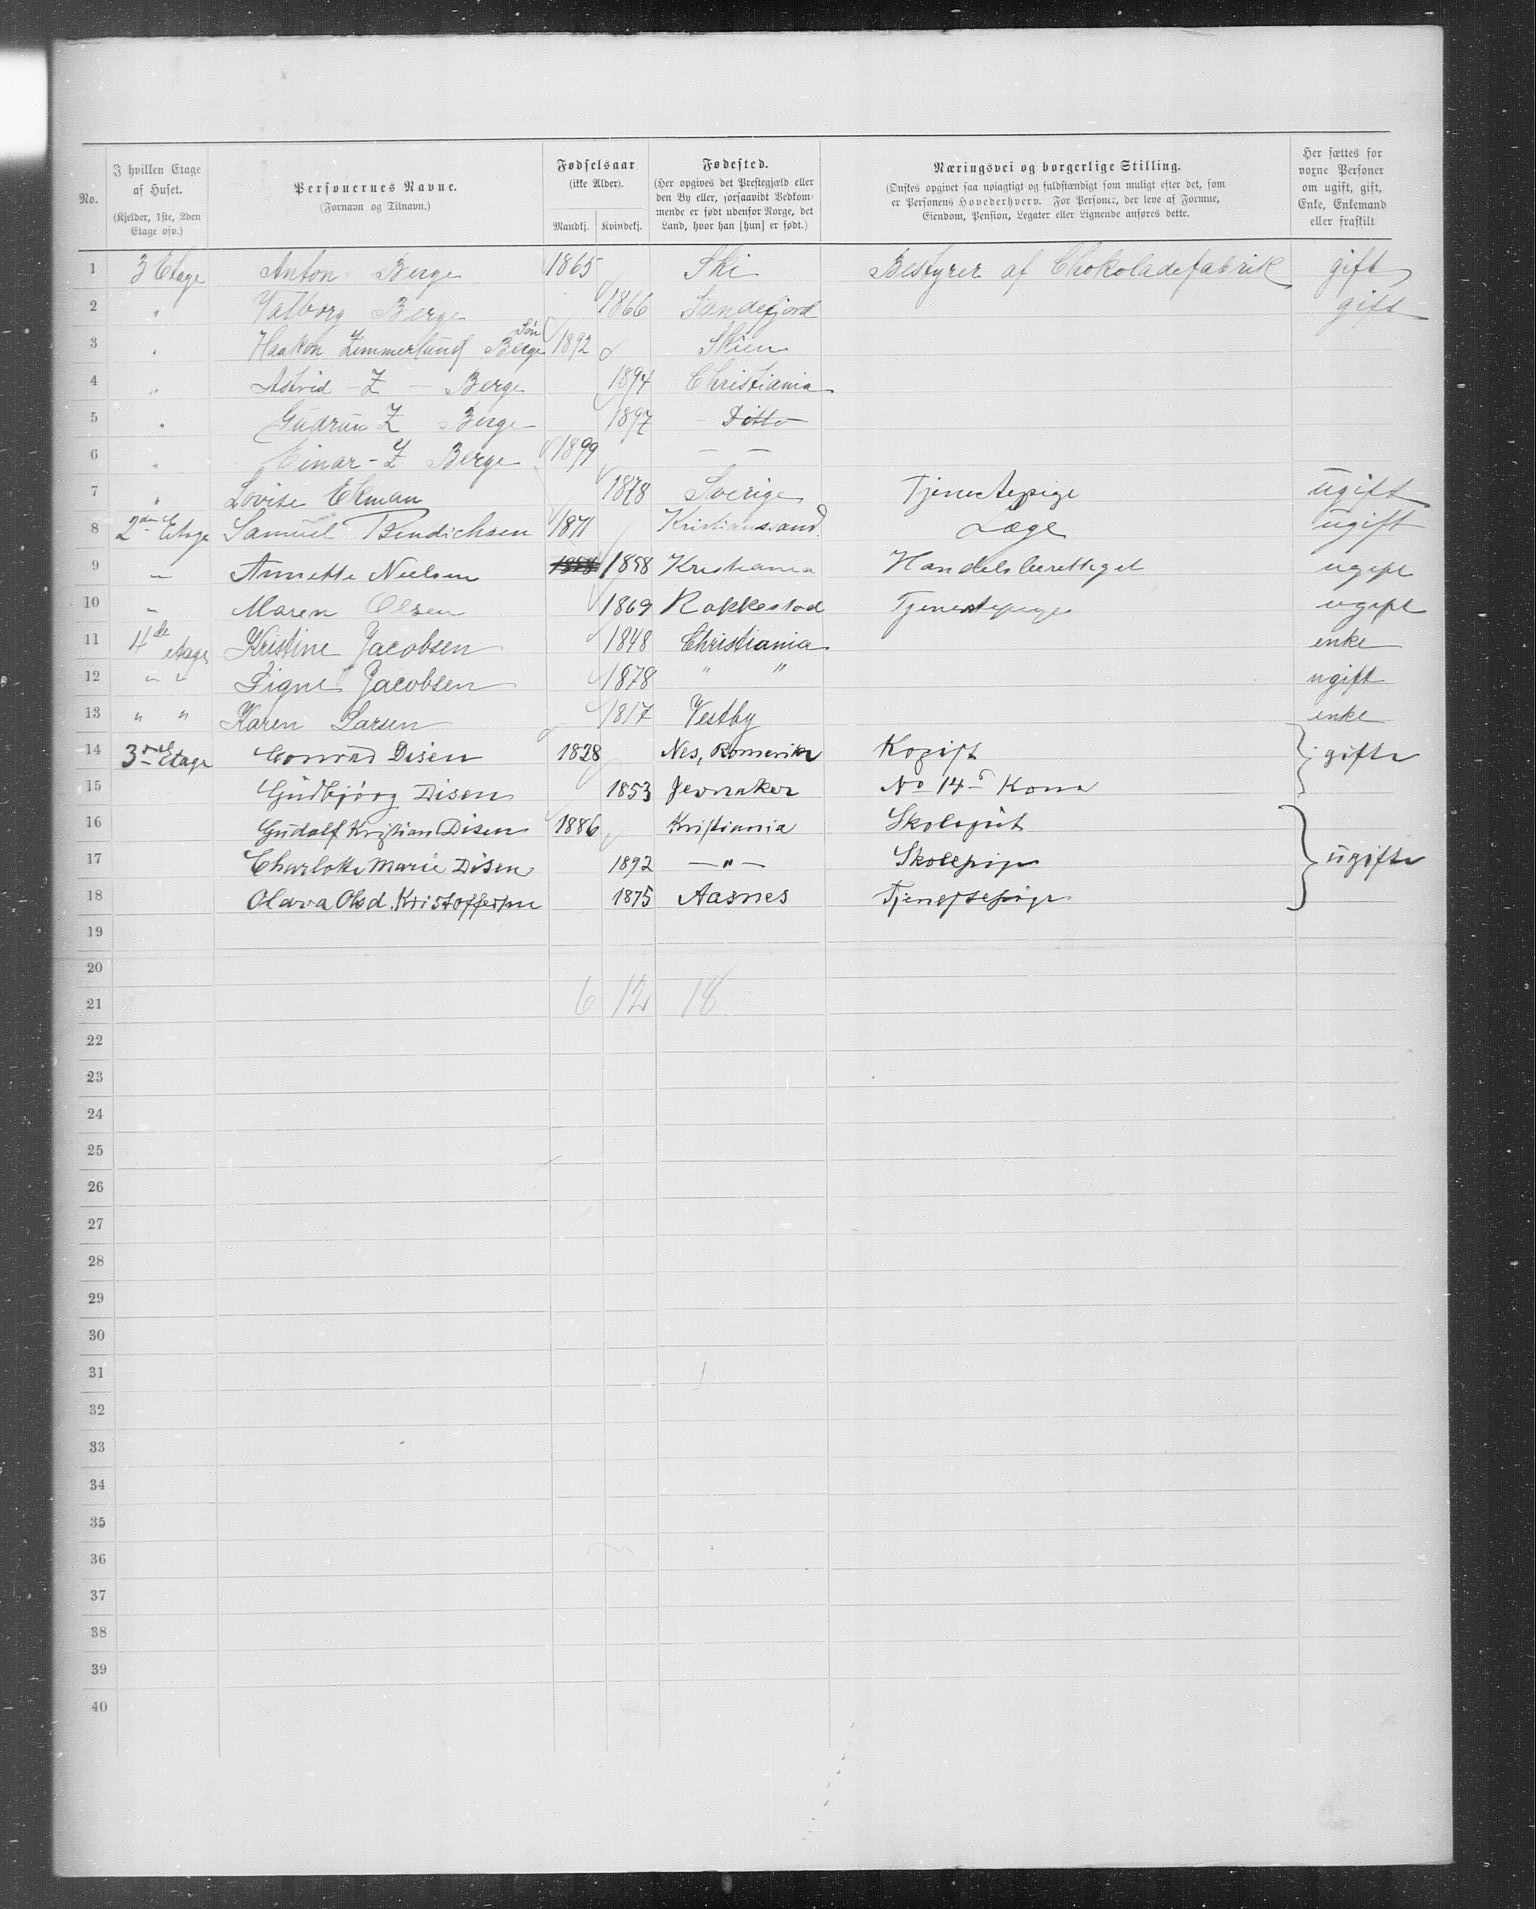 No.
I hvilken Etage af Huset.
(Kjelder, 1ste, 2den Etage osv.)
Personernes Navne.
(Fornavn og Tilnavn.)
Fødselsaar
(ikke Alder).
Mandkj. Kvindekj.
Fødested.
(Her opgives det Prestegjæld eller den By eller, forsaavidt Vedkommende er født udenfor Norge, det Land, hvor han [hun] er født.)
Næringsvei og borgerlige Stilling.
(Ønskes opgivet saa nøiagtigt og fuldstændigt som muligt efter det, som er Personens Hovederhverv. For Personer, der leve af Formue, Eiendom, Pension, Legater eller Lignende anføres dette.
Her sættes for voxne Personer om ugift, gift, Enke, Enkemand eller fraskilt
1 3 Etage Anton Berge 1865 Ski Bestyrer af Chokoladefabrik gift
2 " Valborg Berge 1866 Sandefjord gift
3 " Haakon Zimmerlund Berge Søn 1892 Skien
4 " Astrid - Z - Berge 1894 Christiania
5 " Gudrun Z Berge 1897 - Ditto
6 " Einar - Z Berge 1899 — —
7 " Lovise Ekman 1878 Sverige Tjenestepige ugift
8 2den Etage Samuel Bendichsen 1871 Kristianssand Læge ugift
9 — Annette Nielsen 1858 Kristiania Handelsberettiget ugift
10 — Maren Olsen 1869 Rakkestad Tjenestepige ugift
11 4de etage Kristine Jacobsen 1848 Christiania enke
12 " " Signe Jacobsen 1878 " " ugift
13 " " Karen Larsen 1817 Vestby enke
14 3die Etage Conrad Disen 1828 Nes, Romerike Kopist gifte
15 Gudbjørg Disen 1853 Jevnaker No 14s Kona
16 Gudolf Kristian Disen 1886 Kristiania Skolegut
17 Charlotte Marie Disen 1892 — " — Skolepige ugifte
18 Olava Olsd. Kristoffersen 1875 Aasnes Tjenestepige
19
20
21 6 12 18
22
23
24
25
26
27
28
29
30
31
32
33
34
35
36
37
38
39
40